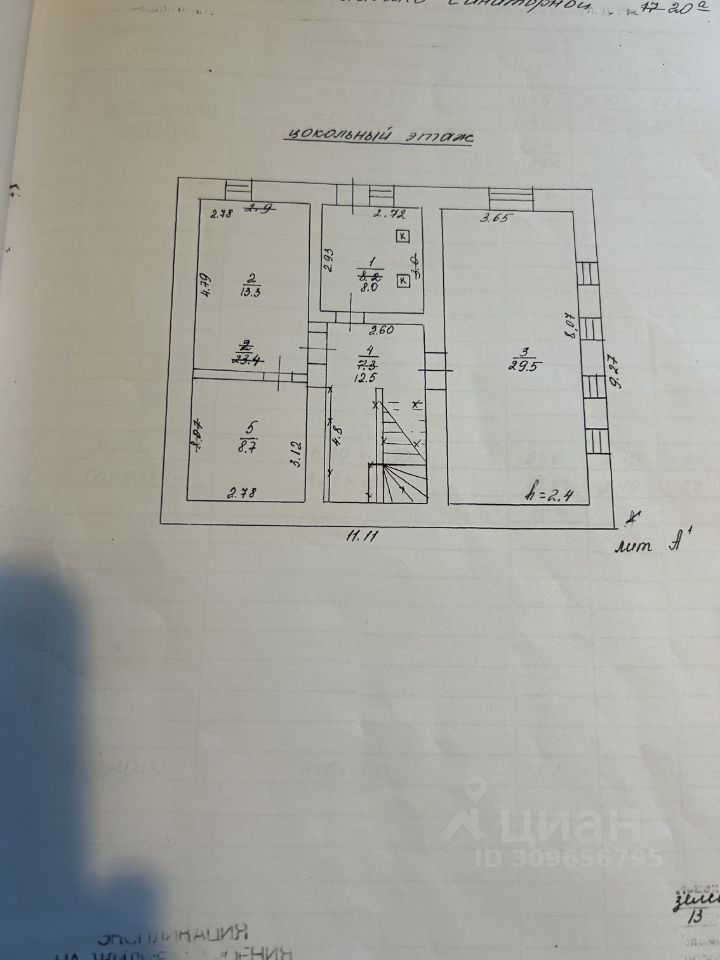 17-20а
цокольный этаж
2.78 2.9 2.72 3.65
2.93 1 3.0
8.2
8.0
К
К
4.79 2
13.3
2.60
8.07
2
23.4
4
7.3
12.5
3
29.5
9.27
5
8.7
8.07
3.12
4.8
2.78
h=2.4
11.11
А¹
лит А¹
циан
ID 309656795
13
ЭКСПЛИКАЦИЯ